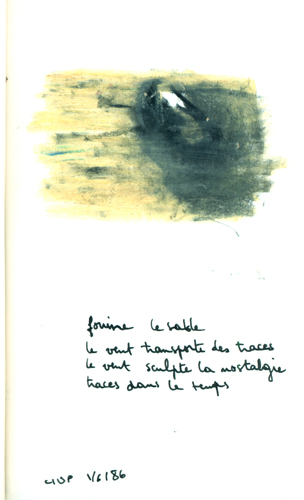 le sable
le vent transporte des traces
le vent sculpte la nostalgie
traces dans le temps
1/6/86